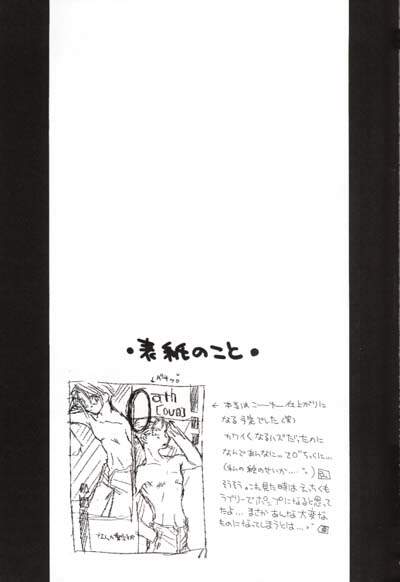 ・表紙のこと・
Oath
[OVA]
← 本当はこーゆー仕上がりに
なる予定でした(笑)
カワイくなるハズだったのに
なんであんなに
(私の絵のせいか……。)
そうそう。これ見た時は
ラブリーでポップになると思って
たよ… まさかあんな大変な
ものになってしまうとは…。